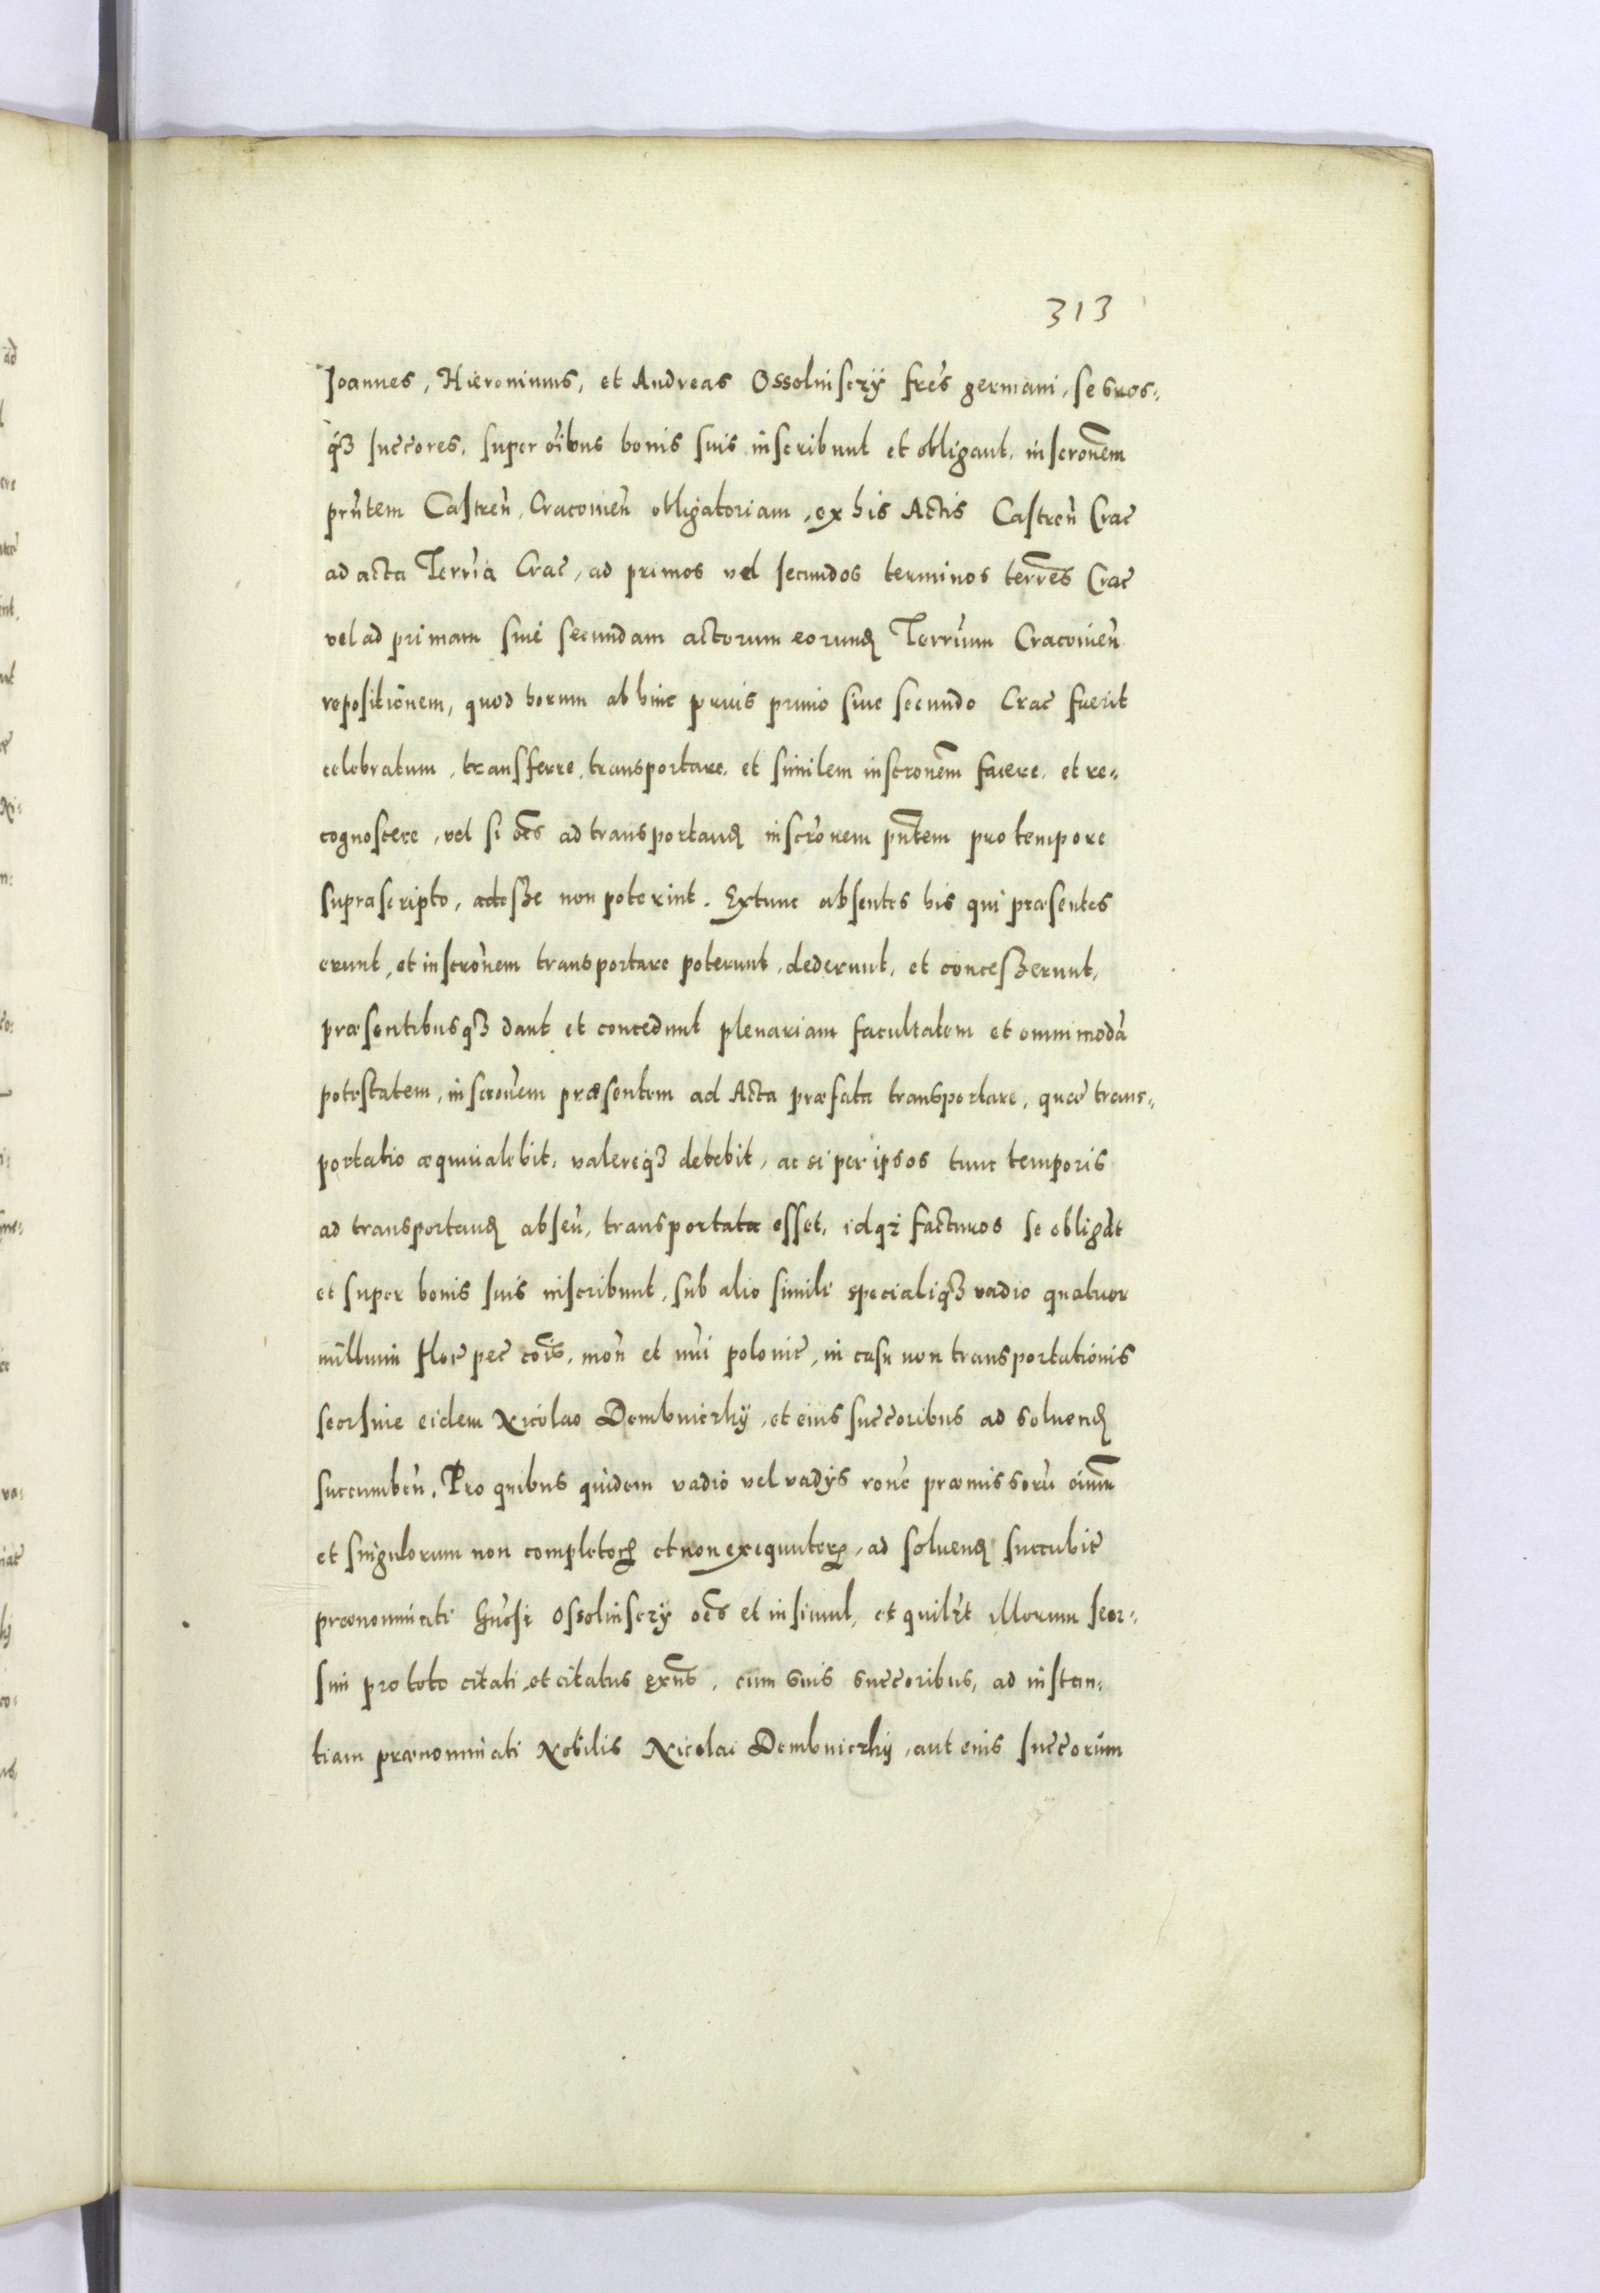 313
Joannes, Hieronimus, et Andreas Ossolinsczÿ fres germani, se suos-
q3 succores, super oibus bonis suis inscribunt et obligant, inscronem
prntem Castren, Cracovien obligatoriam, ex his Actis Castren Crac
ad acta Terria Crac, ad primos vel secundos terminos terres Crac
vel ad primam sive secundam actorum eorund Terrium Cracovien
repositionem, quod horum ab hinc prius primo sive secundo Crac fuerit
celebratum, transferre, transportare, et similem inscronem facere, et re-
cognoscere, vel si oes ad transportand inscronem pntem pro tempore
suprascripto, adesse non poterint. Extunc absentes his qui præsentes
erunt, et inscronem transportare poterunt, dederunt, et concesserunt,
præsentibusq3 dant et concedunt plenariam facultatem et omnimodã
potestatem, inscronem præsentem ad Acta præfata transportare, quæ trans-
portatio æquivalebit, valereq3 debebit, ac si per ipsos tunc temporis
ad transportand absen, transportata esset, idq3 facturos se obligãt
et super bonis suis inscribunt, sub alio simili specialiq3 vadio quatuor
millium Flor pec cois, mon et nui polonic, in casu non transportationis
seorsive eidem Nicolao Dembniczhÿ, et eius succoribus ad solvend
succumben. Pro quibus quidem vadio vel vadÿs ronc præmissorũ oium
et singulorum non completorũ et non exequutorũ, ad solvend succubic
prænominati Gnosi Ossolinsczÿ oes et insimul, et quilzt illorum seor-
sim pro toto citati et citatus exnts, cum suis succoribus, ad instan-
tiam prænominati Nobilis Nicolai Dembniczhÿ, aut eius succorum